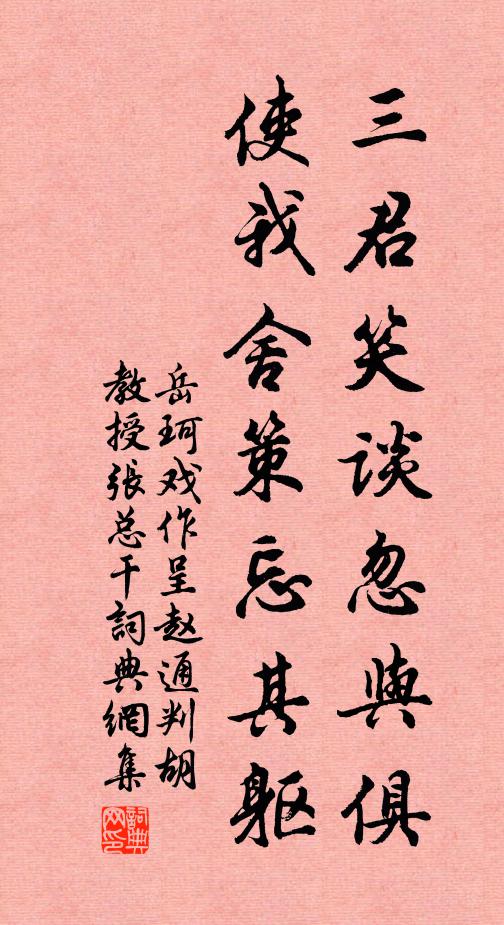 三君笑談忽與俱
使我舍策忘其躯
岳珂戏作呈赵通判胡
教授張总干詞典網集
詞典
网印